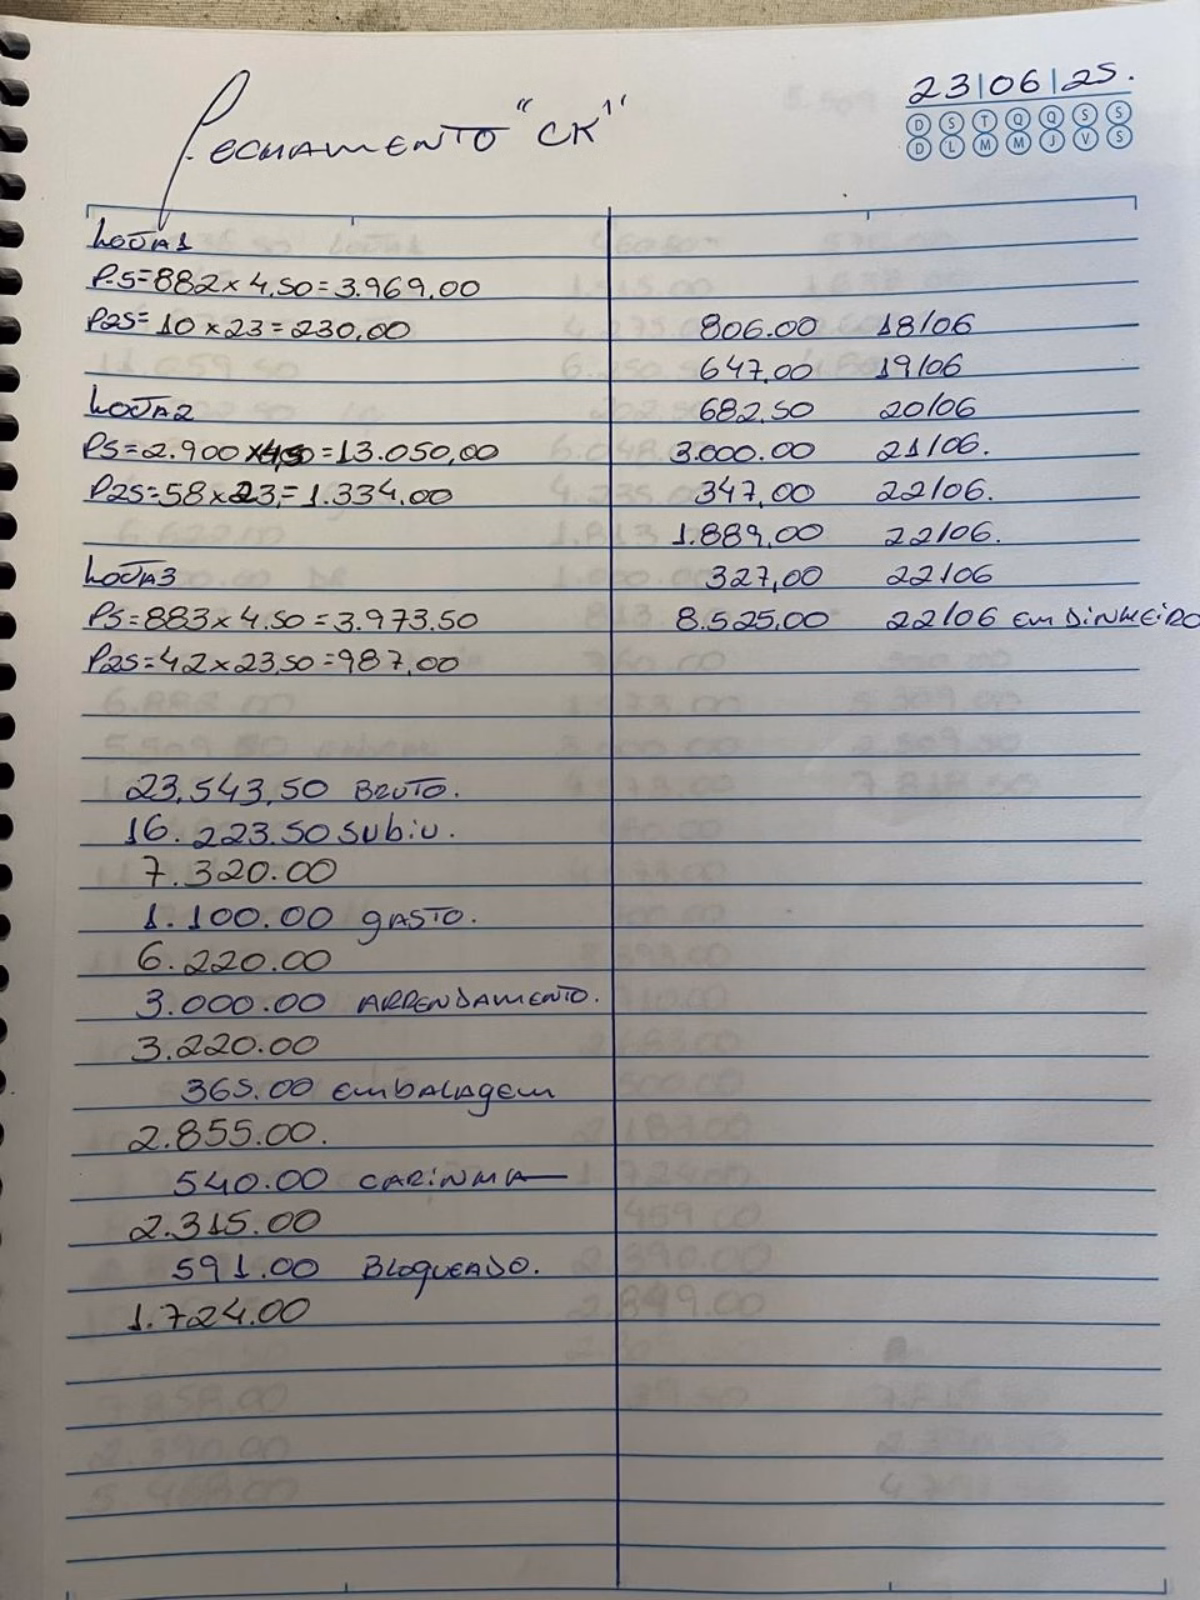 23/06/25.
D S T Q Q S S
D L M M J V S
Fechamento "CK"
Loja1
P.5=882x4,50=3.969,00
P25=10x23=230,00
Loja2
P5=2.900x4,50=13.050,00
P25=58x23,=1.334,00
Loja3
P5=883x4.50=3.973.50
P25=42x23,50=987,00
23,543,50 Bruto.
16.223.50 Subiu.
7.320.00
1.100.00 gasto.
6.220.00
3.000.00 Arrendamento.
3.220.00
365.00 Embalagem
2.855.00.
540.00 Carinha
2.315.00
591.00 Bloqueado.
1.724.00
806.00 18/06
647,00 19/06
682.50 20/06
3.000.00 21/06.
347,00 22/06.
1.889,00 22/06.
327,00 22/06
8.525,00 22/06 em Dinheiro